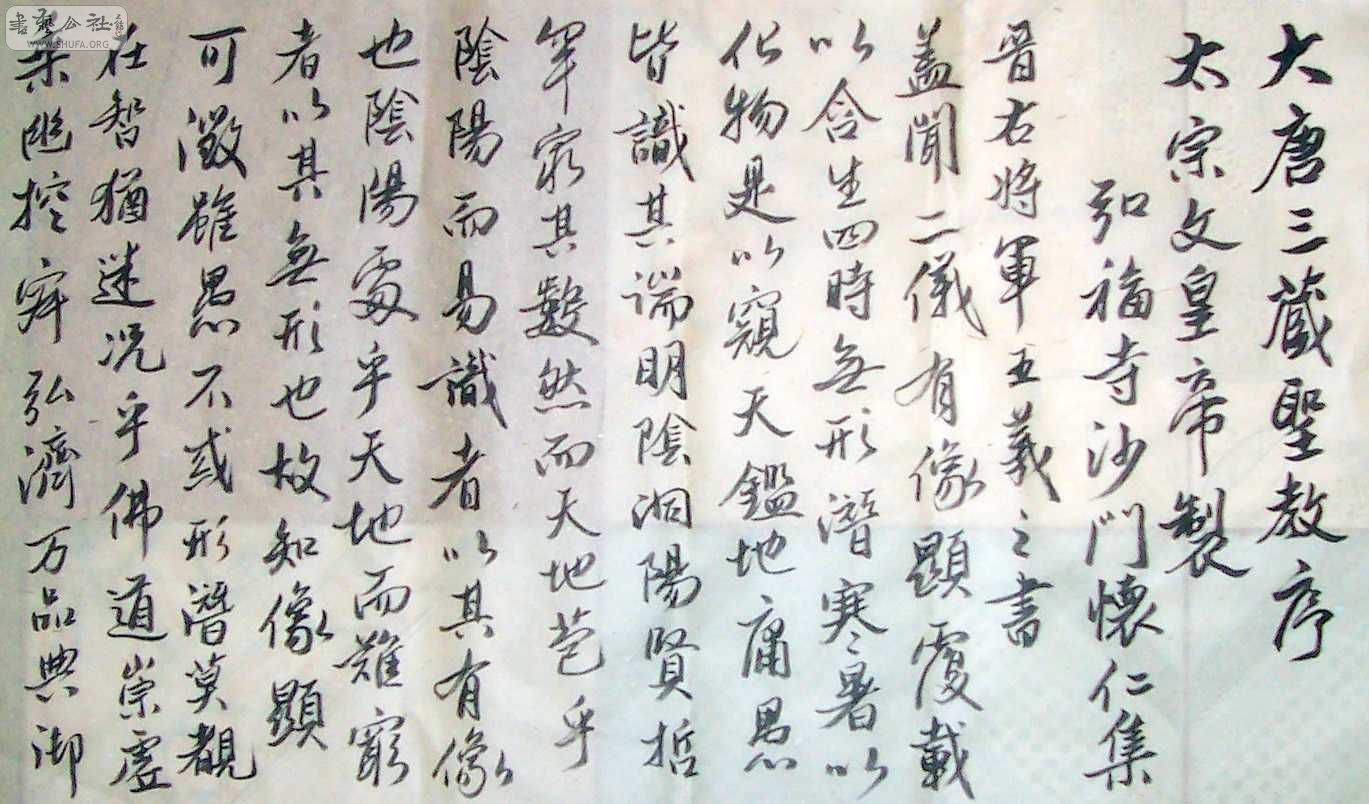 大唐三藏聖教序
太宗文皇帝製
弘福寺沙門懷仁集
晋右將軍王羲之書
盖聞二儀有像顯覆載
以含生四時無形潛寒暑以
化物是以窺天鑑地庸愚
皆識其端明陰洞陽賢哲
罕窮其數然而天地苞乎
陰陽而易識者以其有像
也陰陽處乎天地而難窮
者以其無形也故知像顯
可徵雖愚不惑形潛莫覩
在智猶迷况乎佛道崇虛
乗幽控寂弘濟万品典御
書藝公社
WWW.SHUFA.ORG